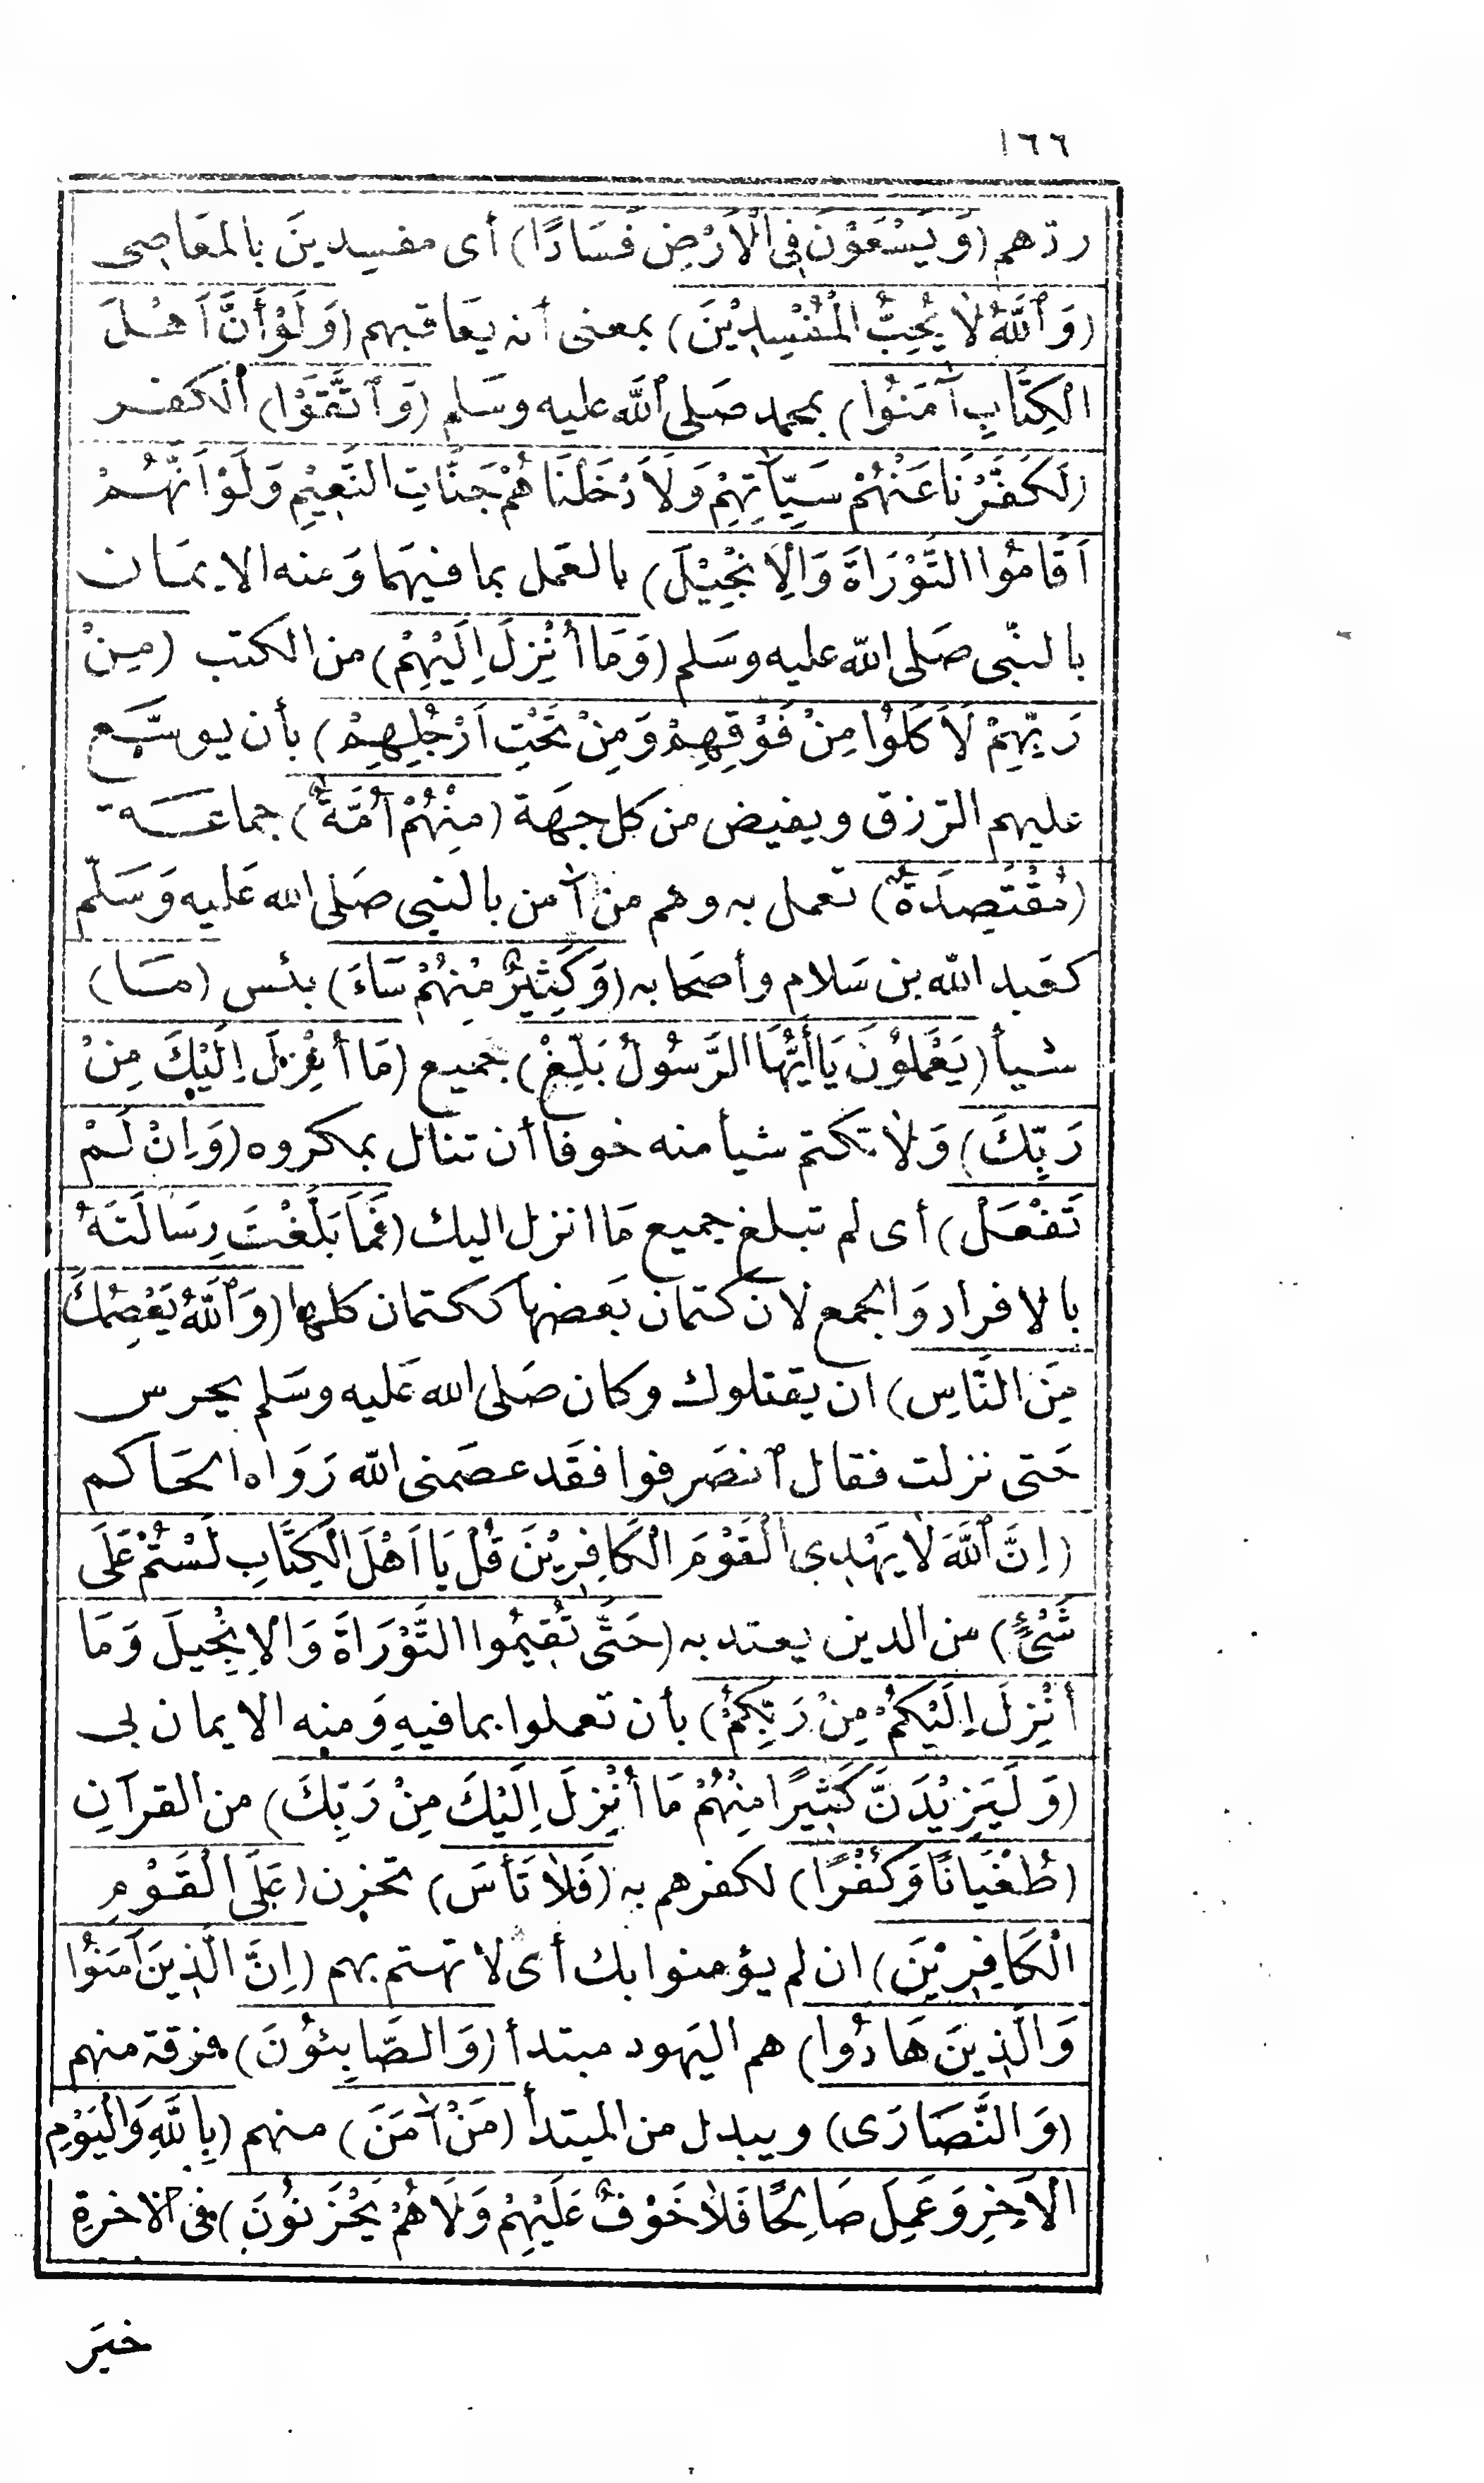 ١٦٦
ردهم (وَيَسْعَوْنَ فِي الْاَرْضِ فَسَادًا) أى مفسدينَ بالمعَاصى
(وَٱللَّهُ لَا يُحِبُّ الْمُفْسِدِيْنَ) بمعنى أنه يعَاقبهم (وَلَوْ أَنَّ اَهْلَ
الْكِتَابِ آمَنُوا) بمحمد صَلى ٱللَّه عليه وسَلم (وَٱتَّقَوْا) ٱلكفر
(لَكَفَّرْنَا عَنْهُمْ سَيِّآتِهِمْ وَلَاَدْخَلْنَاهُمْ جَنَّاتِ النَّعِيْمِ وَلَوْ اَنَّهُمْ
اَقَامُوا التَّوْرَاةَ وَالْاِنْجِيْلَ) بالعَمل بما فيهَما وَمنه الايمَان
بالنّبى صَلى اللّه عليه وسَلم (وَمَا أُنْزِلَ اِلَيْهِمْ) من الكتب (مِنْ
رَبِّهِمْ لَاَكَلُوا مِنْ فَوْقِهِمْ وَمِنْ تَحْتِ اَرْجُلِهِمْ) بأن يوسَّع
عليهم الرّزق ويفيض من كل جهَة (مِنْهُمْ اُمَّةٌ) جماعَة
(مُقْتَصِدَةٌ) تعمل به وهم من آمن بالنبى صَلى الله عَليه وَسَلّم
كعَبد اللّه بن سَلام وأصحَابه (وَكَثِيْرٌ مِنْهُمْ سَاءَ) بئس (مَا)
شيأ (يَعْمَلُوْنَ يَا أَيُّهَا الرَّسُولُ بَلِّغْ) جميع (مَا أُنْزِلَ اِلَيْكَ مِنْ
رَبِّكَ) وَلا تكتم شيأ منه خوفا أن تنال بمكروه (وَاِنْ لَمْ
تَفْعَلْ) أى لم تبلغ جميع مَا انزل اليك (فَمَا بَلَّغْتَ رِسَالَتَهُ)
بالافراد وَالجمع لان كتمان بَعضها ككتمان كلها (وَٱللَّهُ يَعْصِمُكَ
مِنَ النَّاسِ) ان يقتلوك وكان صَلى الله عَليه وسَلم يحرس
حَتى نزلت فقال ٱنصَرفوا فقَد عصَمنى اللّه رَوَاه الحَاكم
(اِنَّ ٱللَّهَ لَا يَهْدِى الْقَوْمَ الْكَافِرِيْنَ قُلْ يَا اَهْلَ الْكِتَابِ لَسْتُمْ عَلَى
شَىْءٍ) من الدين يعتد به (حَتَّى تُقِيْمُوا التَّوْرَاةَ وَالْاِنْجِيلَ وَمَا
أُنْزِلَ اِلَيْكُمْ مِنْ رَبِّكُمْ) بأن تعملوا بما فيهِ وَمنه الايمان بى
(وَلَيَزِيْدَنَّ كَثِيْرًا مِنْهُمْ مَا أُنْزِلَ اِلَيْكَ مِنْ رَبِّكَ) من القرآن
(طُغْيَانًا وَكُفْرًا) لكفرهم به (فَلَا تَأْسَ) تحزن (عَلَى الْقَوْمِ
الْكَافِرِيْنَ) ان لم يؤمنوا بك أى لا تهتم بهم (اِنَّ الَّذِينَ آمَنُوا
وَالَّذِينَ هَادُوا) هم اليَهود مبتدأ (وَالصَّابِئُوْنَ) فرقة منهم
(وَالنَّصَارَى) ويبدل من المبتدأ (مَنْ آمَنَ) منهم (بِاللَّهِ وَالْيَوْمِ
الْآخِرِ وَعَمِلَ صَالِحًا فَلَا خَوْفٌ عَلَيْهِمْ وَلَا هُمْ يَحْزَنُوْنَ) فى الاخرة
خبَر